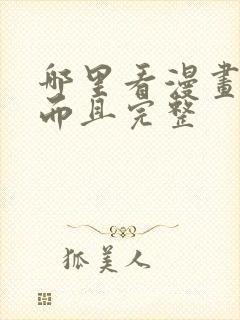 哪里看漫畫
而且完整
狐美人